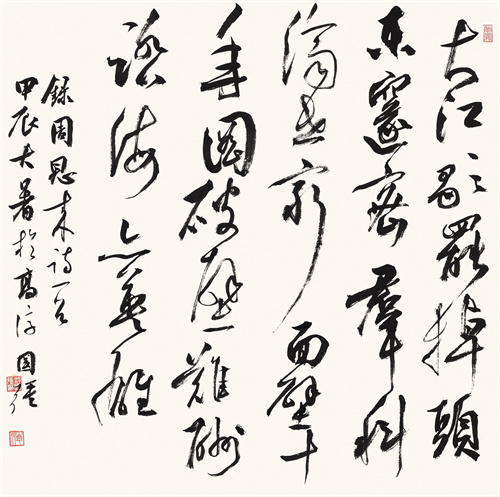 大江歌罷掉頭
東邃密羣科
濟世窮面壁十
年圖破壁難酬
蹈海亦英雄
錄周恩来詩一首
甲辰大暑於高淳国